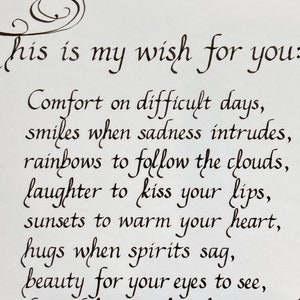 This is my wish for you:
Comfort on difficult days,
smiles when sadness intrudes,
rainbows to follow the clouds,
laughter to kiss your lips,
sunsets to warm your heart,
hugs when spirits sag,
beauty for your eyes to see,